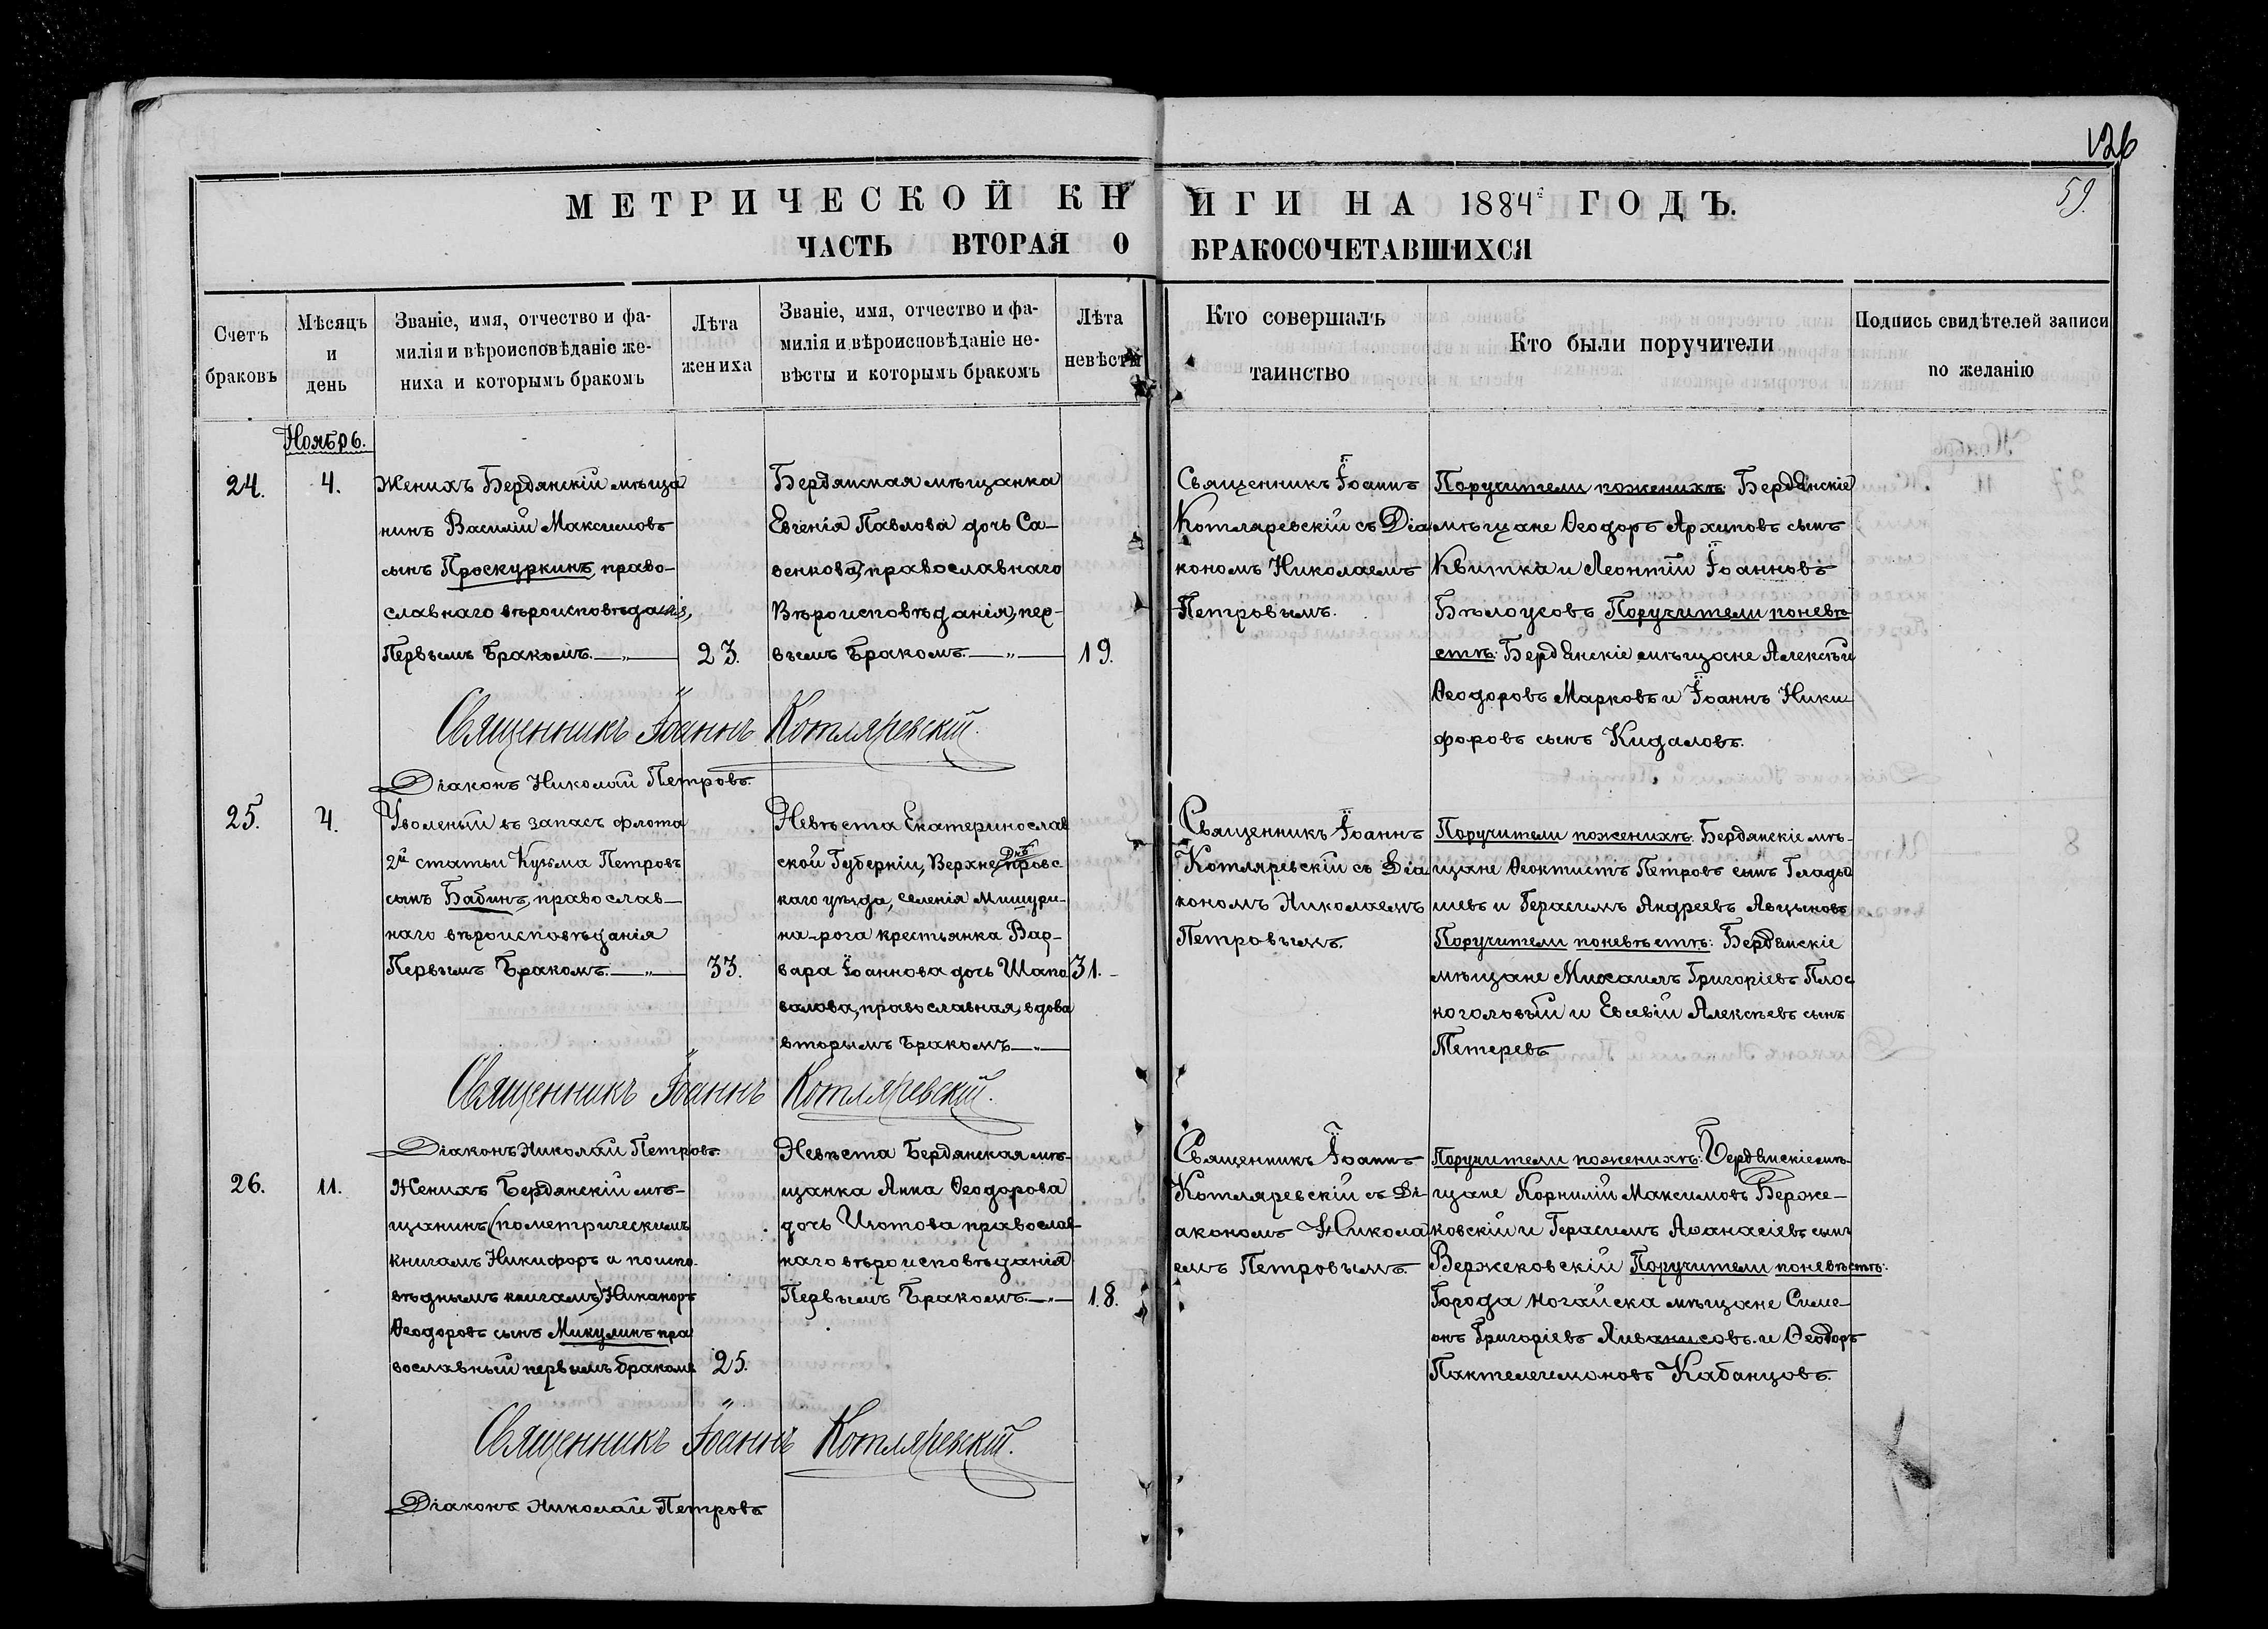 126
59.
МЕТРИЧЕСКОЙ КНИГИ НА 1884й ГОДЪ.
ЧАСТЬ ВТОРАЯ О БРАКОСОЧЕТАВШИХСЯ
Счетъ
браковъ
Мѣсяцъ
и
день
Званіе, имя, отчество и фа-
милія и вѣроисповѣданіе же-
ниха и которымъ бракомъ
Лѣта
жениха
Званіе, имя, отчество и фа-
милія и вѣроисповѣданіе не-
вѣсты и которымъ бракомъ
Лѣта
невѣсты
Кто совершалъ
таинство
Кто были поручители
Подпись свидѣтелей записи
по желанію
Ноябрь.
24.
4.
Женихъ Бердянскій мѣща
нинъ Василій Максимовъ
сынъ Проскуркинъ, право-
славнаго вѣроисповѣданія,
Первымъ Бракомъ.
23.
Бердянская мѣщанка
Евгенія Павлова дочь Са-
венкова, православнаго
Вѣроисповѣданія, пер-
вымъ Бракомъ.
19.
Священникъ Іоаннъ
Котляревскій съ Діа
кономъ Николаемъ
Петровымъ.
Поручители пожениха: Бердянскіе
мѣщане Ѳеодоръ Архиповъ сынъ
Квитка и Леонтій Іоанновъ
Бѣлоусовъ Поручители поневѣ
стѣ: Бердянскіе мѣщане Алексѣй
Ѳеодоровъ Марковъ и Іоаннъ Ники
форовъ сынъ Кидаловъ.
Священникъ Іоаннъ Котляревскій.
Діаконъ Николай Петровъ.
25.
4.
Уволеный въ запасъ флота
2й статьи Кузьма Петровъ
сынъ Бабинъ, православ-
наго вѣроисповѣданія
Первымъ Бракомъ.
33.
Невѣста Екатеринослав
ской Губерніи, Верхнеднѣпровс
каго уѣзда, селенія Мишури-
на-рога крестьянка Вар-
вара Іоаннова дочь Шапо
валова, православная, вдова
вторымъ Бракомъ
31.
Священникъ Іоаннъ
Котляревскій съ Діа
кономъ Николаемъ
Петровымъ.
Поручители поженихѣ: Бердянскіе мѣ-
щане Ѳеоктистъ Петровъ сынъ Глады
шевъ и Герасимъ Андреевъ
Поручители поневѣстѣ: Бердянскіе
мѣщане Михаилъ Григоріевъ Плос
коголовый и Евсевій Алексѣевъ сынъ
Тетеревъ
Священникъ Іоаннъ Котляревскій.
Діаконъ Николай Петровъ.
26.
11.
Женихъ Бердянскій мѣ-
щанинъ (по метрическимъ
книгамъ Никифоръ а поиспо-
вѣднымъ книгамъ) Никаноръ
Ѳеодоровъ сынъ Микулинъ пра
вославный первымъ бракомъ
25.
Невѣста Бердянская мѣ-
щанка Анна Ѳеодорова
дочь Изотова православ-
наго вѣроисповѣданія
Первымъ Бракомъ.
18.
Священникъ Іоаннъ
Котляревскій съ Ді-
акономъ Никола
емъ Петровымъ.
Поручители поженихѣ: Бердянскіе мѣ-
щане Корнилій Максимовъ Верже-
ковскій и Герасимъ Аѳанасіевъ сынъ
Вержековскій Поручители поневѣстѣ:
Города Ногайска мѣщане Симе-
онъ Григоріевъ и Ѳеодоръ
Пантелеимоновъ Кабанцовъ.
Священникъ Іоаннъ Котляревскій.
Діаконъ Николай Петровъ